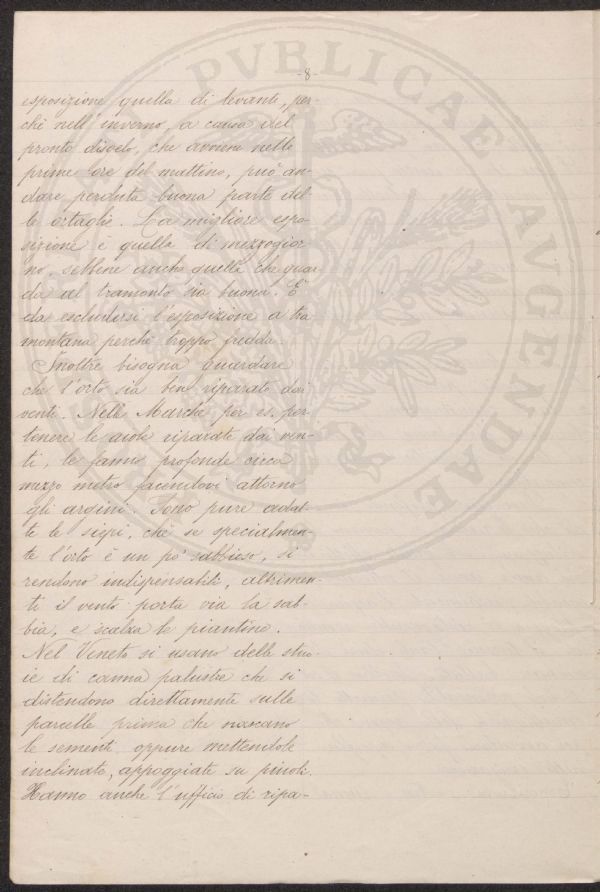 -8-
esposizione quella di levante, per-
chè nell'inverno, a causa del
pronto disgelo, che avviene nelle
prime ore del mattino, può an-
dare perduta buona parte del-
le ortaglie. La migliore espo-
sizione è quella di mezzogior-
no, sebbene anche quella che guar-
da al tramonto sia buona. È
da escludersi l'esposizione a tra
montana perchè troppo fredda.
Inoltre bisogna guardare
che l'orto sia ben riparato dai
venti. Nelle Marche, per es. per
tenere le aiole riparate dai ven-
ti, le fanno profonde circa
mezzo metro facendovi attorno
gli argini. Sono pure adat-
te le siepi, che se specialmen-
te l'orto è un po' sabbioso, si
rendono indispensabili, altrimen-
ti il vento porta via la sab-
bia, e scalza le piantine.
Nel Veneto si usano delle stuo-
ie di canna palustre che si
distendono direttamente sulle
parcelle prima che nascano
le sementi oppure mettendole
inclinate, appoggiate su pinoli.
Hanno anche l'ufficio di ripa-
PVBLICAE AVGENDAE